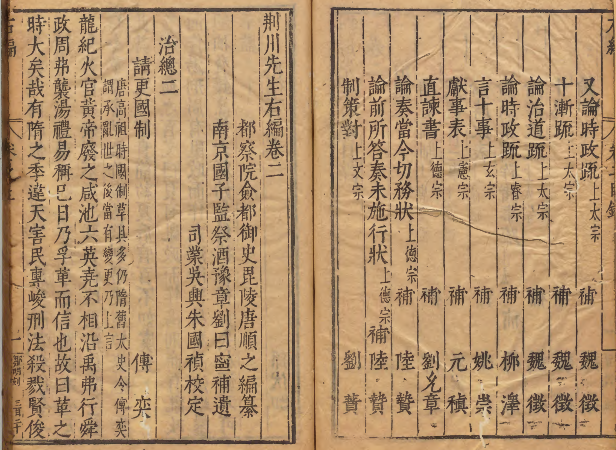 又論時政疏上太宗 補 魏徵
十漸疏上太宗 補 魏徵
論治道疏上太宗 魏徵
論時政疏上睿宗 補 柳澤
言十事上玄宗 補 姚崇
獻事表上憲宗 補 元稹
直諫書上德宗 補 劉允章
論奏當今切務狀上德宗 補 陸贄
論前所答奏未施行狀上德宗 補 陸贄
制策對上文宗 劉蕡
荆川先生右編卷二
都察院僉都御史毘陵唐順之編纂
南京國子監祭酒豫章劉曰寧補遺
司業吳興朱國禎校定
治總二
請更國制 傅奕
唐高祖時國制草具多仍隋舊太史令傅奕
謂承亂世之後當有變更乃上言
龍紀火官黃帝廢之咸池六英堯不相沿禹弗行舜
政周弗襲湯禮易稱巳日乃孚革而信也故曰革之
時大矣哉有隋之季違天害民專峻刑法殺戮賢俊